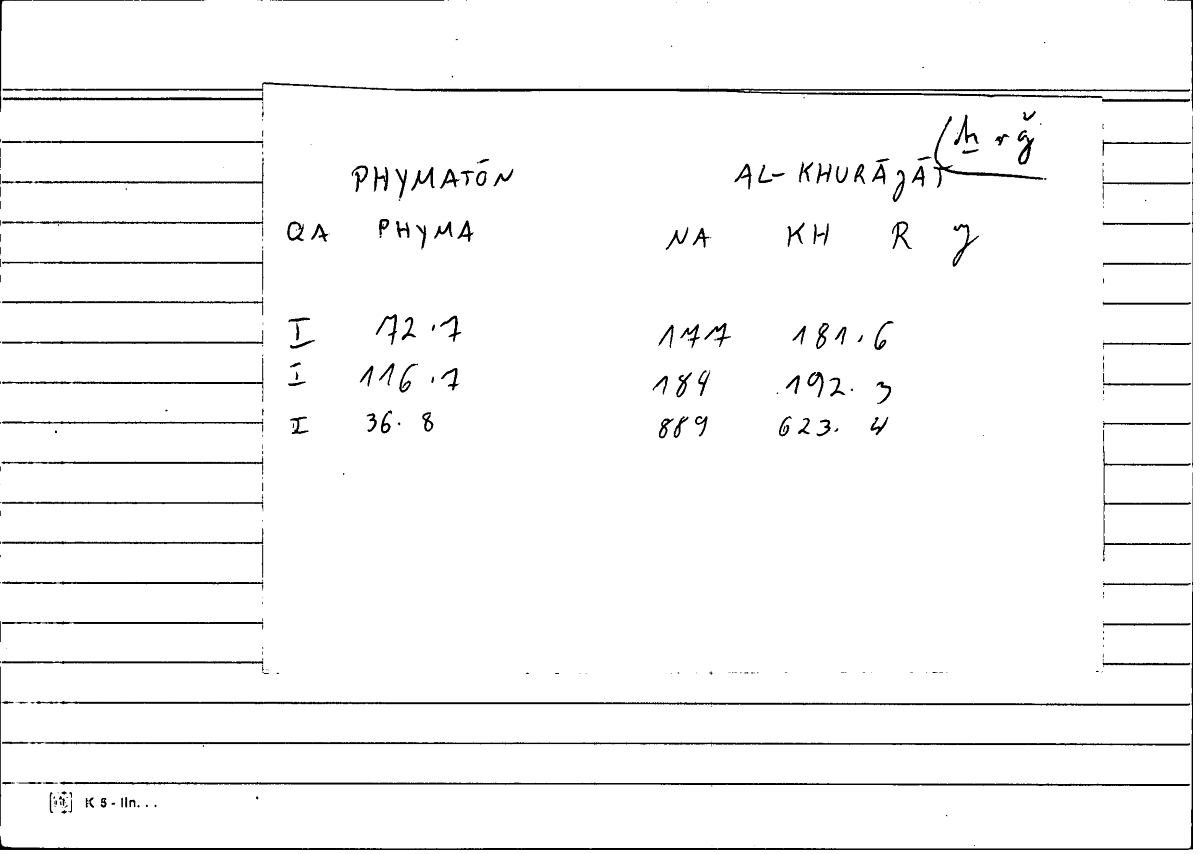 (ḫ r ǧ
PHYMATŌN AL-KHURĀJĀT
QA PHYMA NA KH R J
I 72.7 177 181.6
I 116.7 184 192.3
I 36.8 889 623.4
K 5 - lin...